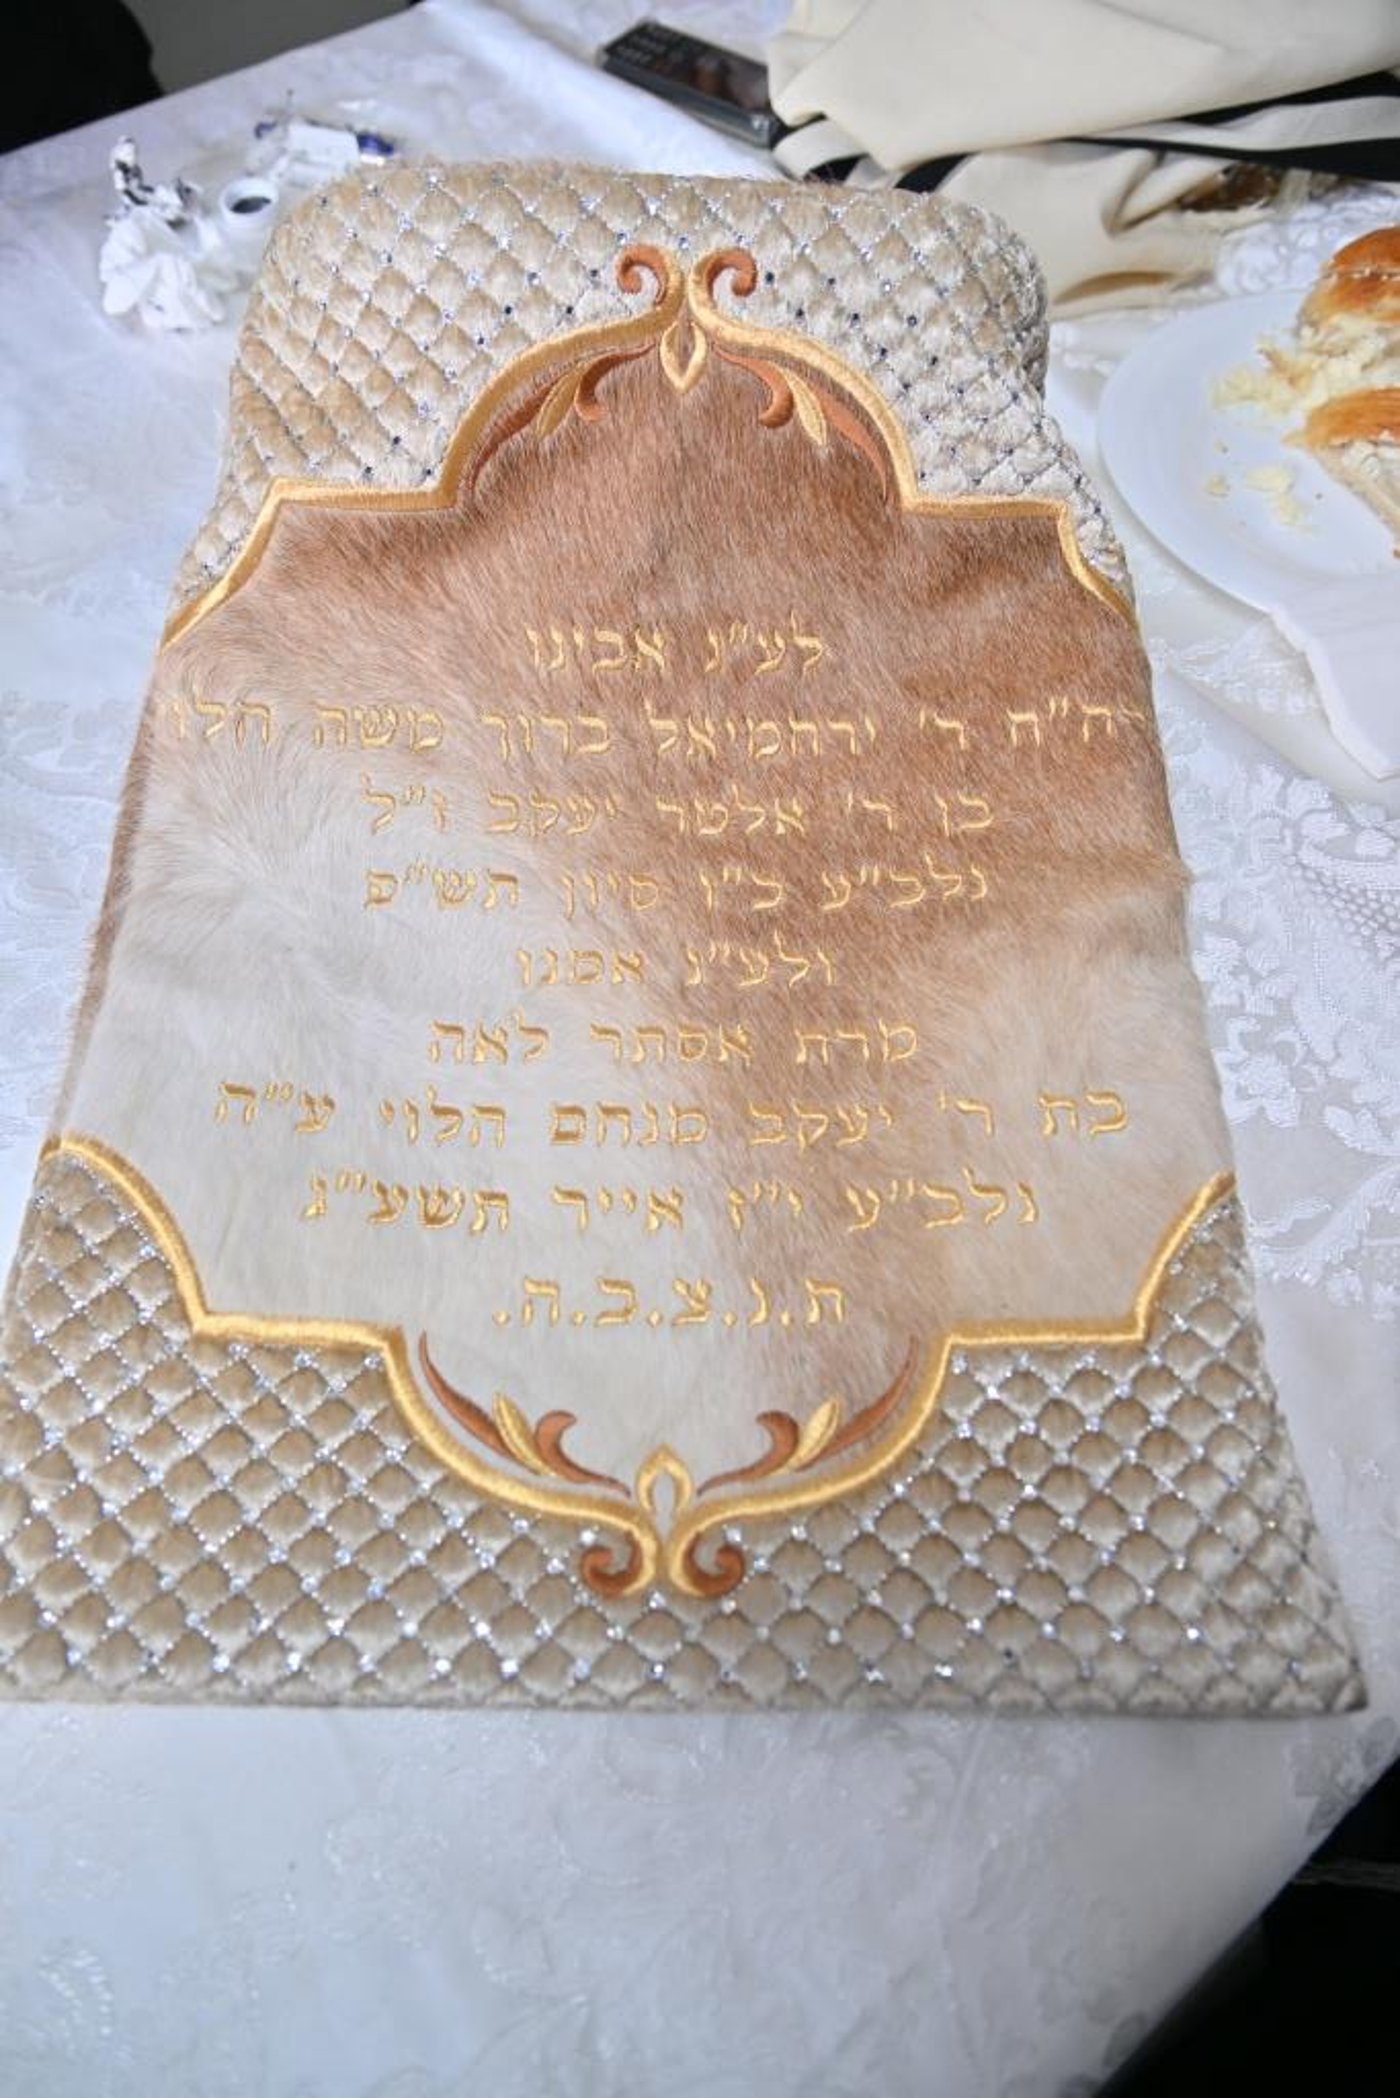 לע"נ אבינו
הרה"ח ר' ירחמיאל ברוך משה הלוי
בן ר' אלטר יעקב ז"ל
נלב"ע כ"ו סיון תש"ס
ולע"נ אמנו
מרת אסתר לאה
בת ר' יעקב מנחם הלוי ע"ה
נלב"ע י"ז אייר תשע"ג
ת.נ.צ.ב.ה.